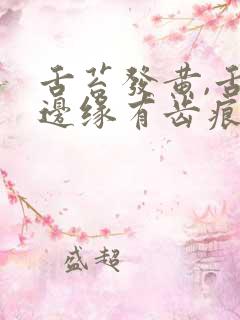 舌苔發黄,舌
邊缘有齿痕
盛超